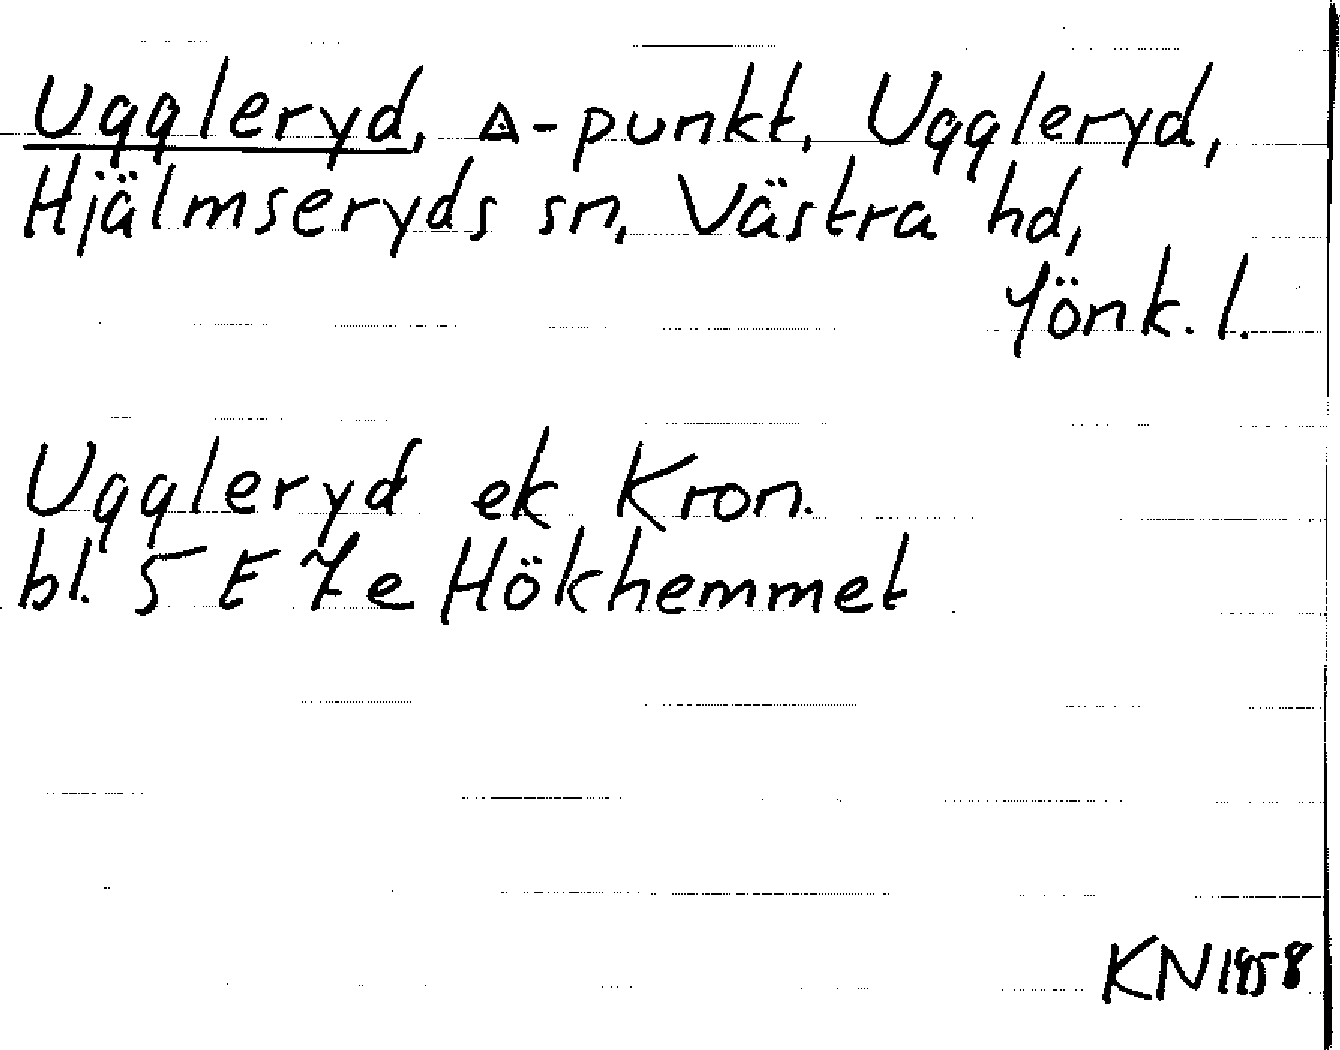 Uggleryd, △-punkt, Uggleryd,
Hjälmseryds sn, Västra hd,
Jönk. l.
Uggleryd ek Kron.
bl. 5 E 7e Hökhemmet
KN 1958